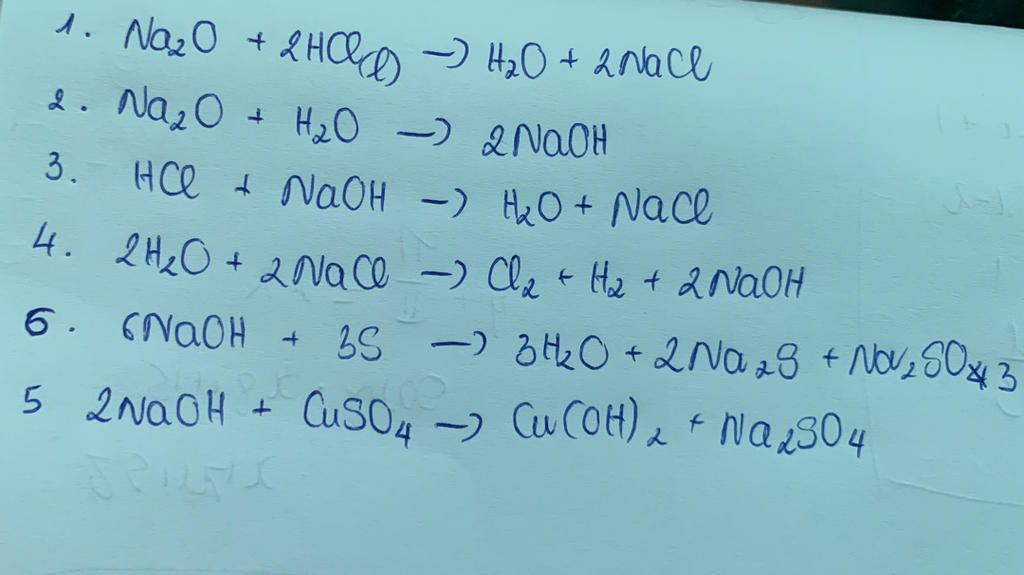 1. Na₂O + 2HCl(l) → H₂O + 2NaCl
2. Na₂O + H₂O → 2NaOH
3. HCl + NaOH → H₂O + NaCl
4. 2H₂O + 2NaCl → Cl₂ + H₂ + 2NaOH
6. 6NaOH + 3S → 3H₂O + 2Na₂S + Na₂SO₃
5 2NaOH + CuSO₄ → Cu(OH)₂ + Na₂SO₄